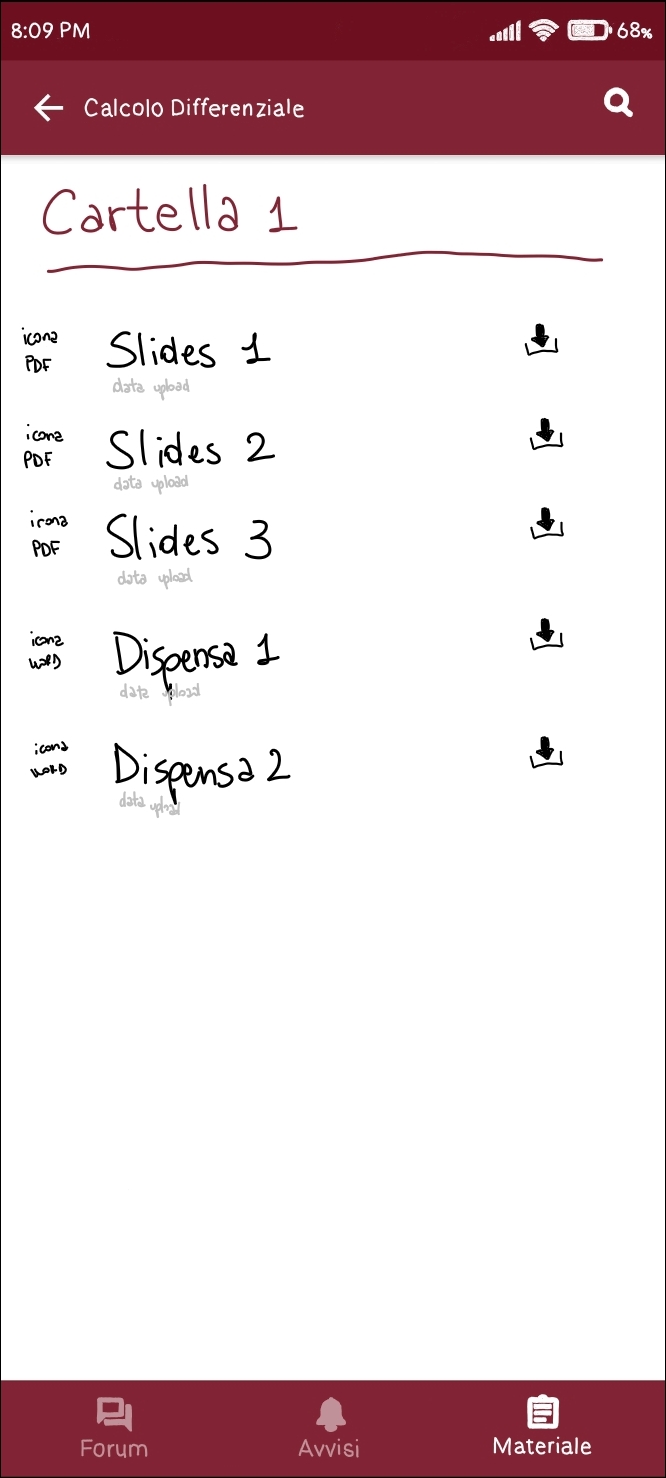 8:09 PM 68%
Calcolo Differenziale
Cartella 1
icona
PDF
Slides 1
data upload
icona
PDF
Slides 2
data upload
icona
PDF
Slides 3
data upload
icona
WORD
Dispensa 1
data upload
icona
WORD
Dispensa 2
data upload
Forum Avvisi Materiale